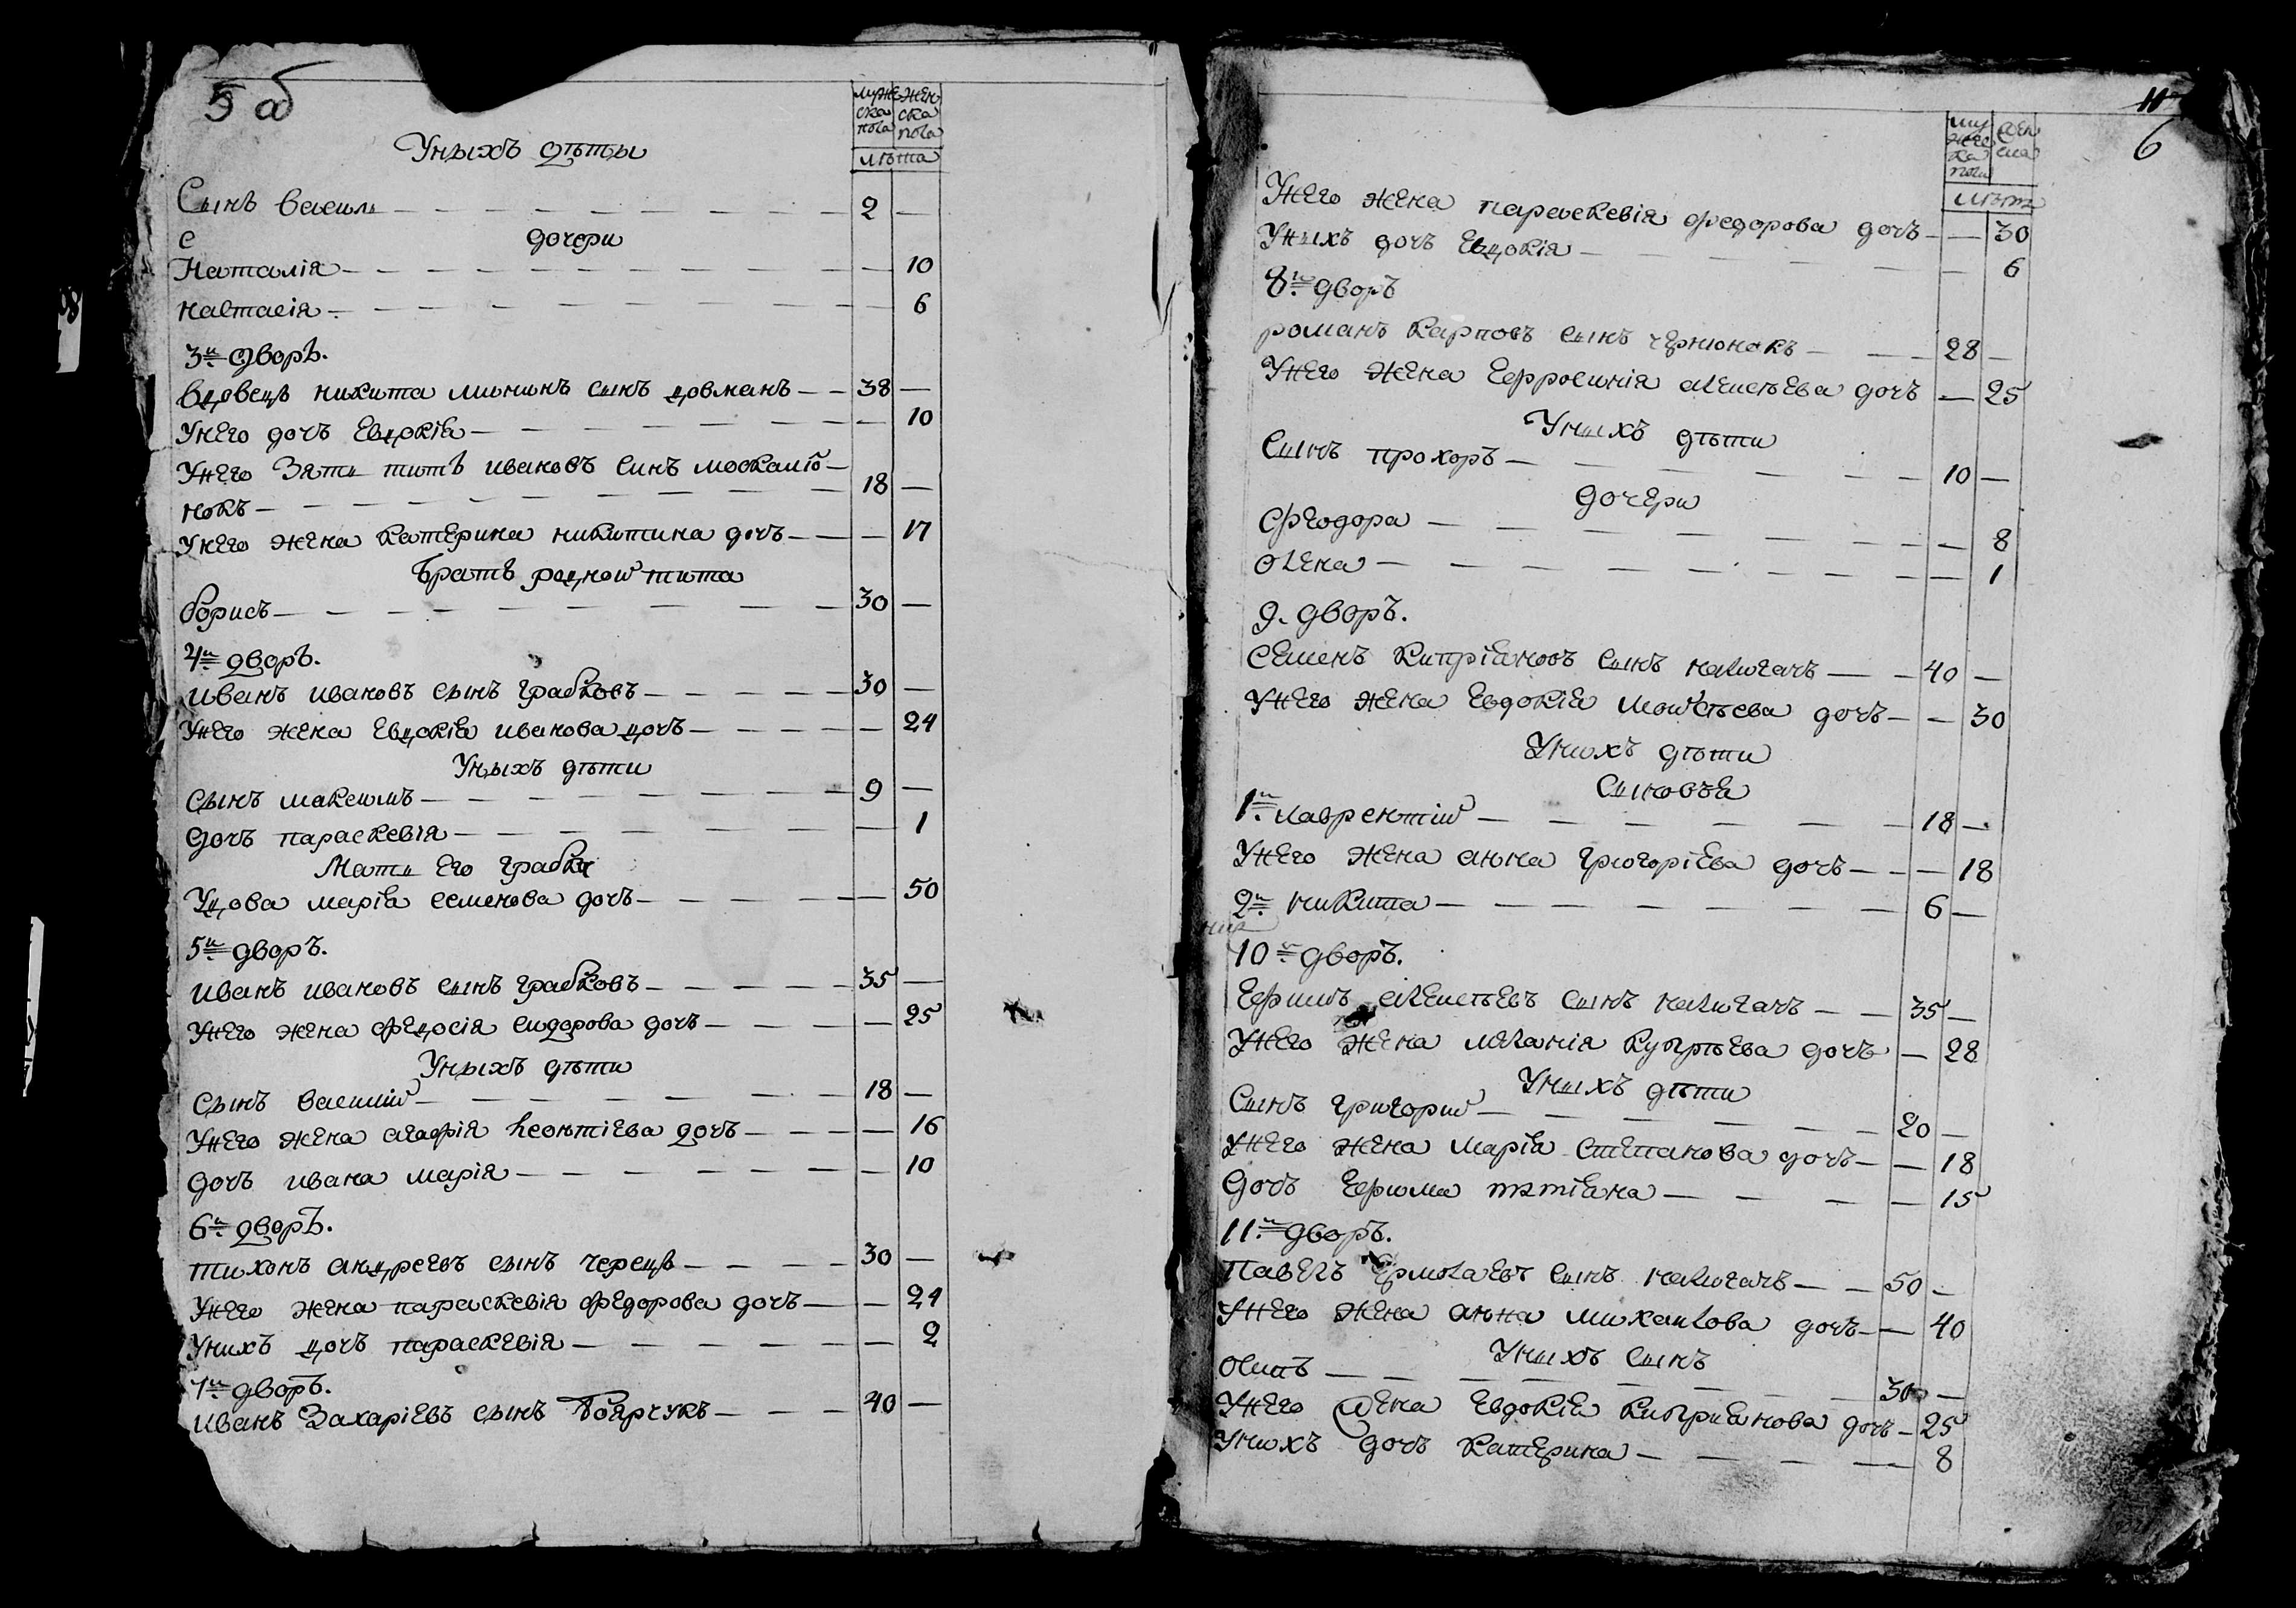 5 об
муже ска пола
жен ска пола
лѣта
Уныхъ дѣты
Сынъ василь — 2 —
с
дочери
Наталія — — 10
настасія — — 6
3й дворъ.
вдовецъ никита мининъ сынъ довманъ — 38 —
Унего дочъ Евдокіа — — 10
Унего Зять титъ ивановъ синъ москалю-
нокъ — 18 —
Унего жена катерина никитина дочъ — — 17
Братъ родной тита
борисъ — 30 —
4й дворъ.
иванъ ивановъ сынъ грабковъ — 30 —
Унего жена Евдокіа иванова дочъ — — 24
Уныхъ дѣти
сынъ максимъ — 9 —
дочъ параскевія — — 1
Мать Его грабка
Удова маріа семенова дочъ — — 50
5й дворъ.
иванъ ивановъ сынъ грабковъ — 35 —
Унего жена федосія сидорова дочъ — — 25
Уныхъ дѣти
сынъ василій — 18 —
Унего жена агафія леонтіева дочъ — — 16
дочъ ивана марія — — 10
6й дворъ.
тихонъ андреевъ сынъ черецъ — 30 —
Унего жена параскевія федорова дочъ — — 24
Унихъ дочъ параскевія — — 2
7й дворъ.
иванъ Захаріевъ сынъ Боярчукъ — 40 —
11
6
му жес ка пола
жен ска
лѣта
Унего жена параскевія федорова дочъ — — 30
Уныхъ дочъ Евдокія — — 6
8й дворъ
романъ карповъ сынъ чернюнокъ — 28 —
Унего жена Ефросинія алексѣева дочъ — — 25
Уныхъ дѣти
Сынъ прохоръ — 10 —
дочери
феодора — — 8
олена — — 1
9. дворъ.
семенъ кипріановъ сынъ калигачъ — 40 —
Унего жена Евдокіа моисѣева дочъ — — 30
Унихъ дѣти
Синовѣа
1й лаврентій — 18 —
Унего жена анна григоріева дочъ — — 18
2й никита — 6 —
10й дворъ.
Ефимъ алексѣевъ сынъ калигачъ — 35 —
Унего жена меланія купрѣева дочъ — — 28
Уныхъ дѣти
Сынъ григорий — 20 —
Унего жена маріа степанова дочъ — — 18
дочъ Ефима тетіана — — 15
11й дворъ.
Павелъ Ермолаевъ сынъ калигачъ — 50 —
Унего жена анна михаилова дочъ — — 40
Уныхъ сынъ
осипъ — 30 —
Унего жена Евдокіа кибриянова дочъ — 25
Унихъ дочъ катерина — — 8